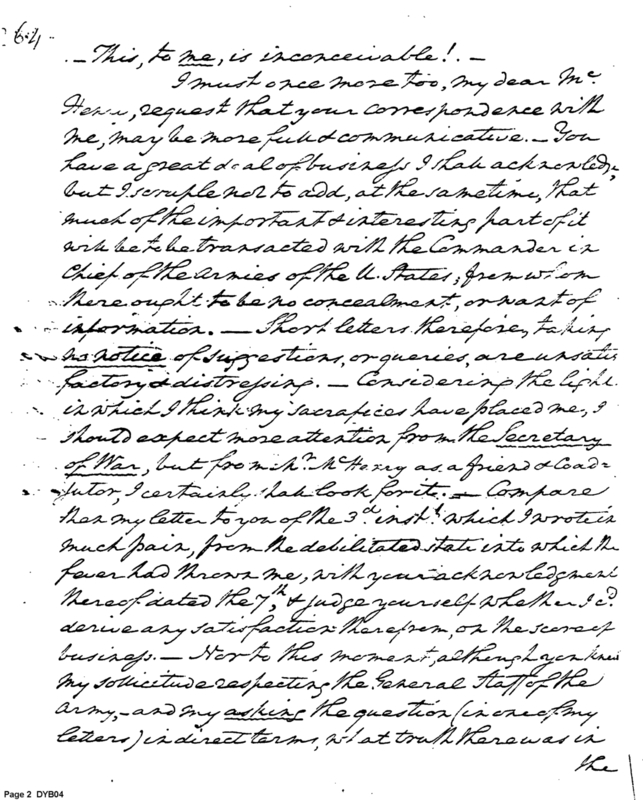 64
. — This, to me, is inconceivable! . —
I must once more too, my dear Mc.
Henry, request that your correspondence with
me, may be more full & communicative. — You
have a great deal of business I shall acknowledge,
but I scruple not to add, at the sametime, that
much of the important & interesting part of it
will be to be transacted with the Commander in
Chief of the Armies of the U. States, from whom
there ought to be no concealment, or want of
information. — Short letters therefore, taking
no notice of suggestions, or queries, are unsatis
factory & distressing. — Considering the light
in which I think my sacrafices have placed me, I
should expect more attention from the Secretary
of War, but from Mr. McHenry as a friend & Coad-
jutor, I certainly shall look for it. — Compare
then my letter to you of the 3d. instt. which I wrote in
much pain, from the debilitated state into which the
fever had thrown me, with your acknowledgment
thereof dated the 7th, & judge yourself whether I cd.
derive any satisfaction therefrom, on the score of
business. — Nor to this moment, although you knew
my sollicitude respecting the General Staff of the
Army, — and my asking the question (in one of my
letters) in direct terms, what truth there was in
the
Page 2 DYB04